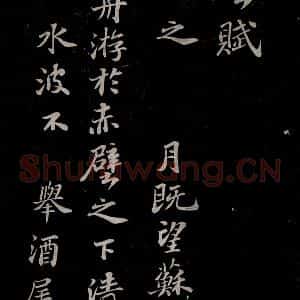 賦
之月既望蘇
舟游於赤壁之下清
水波不舉酒
Shufawang.CN